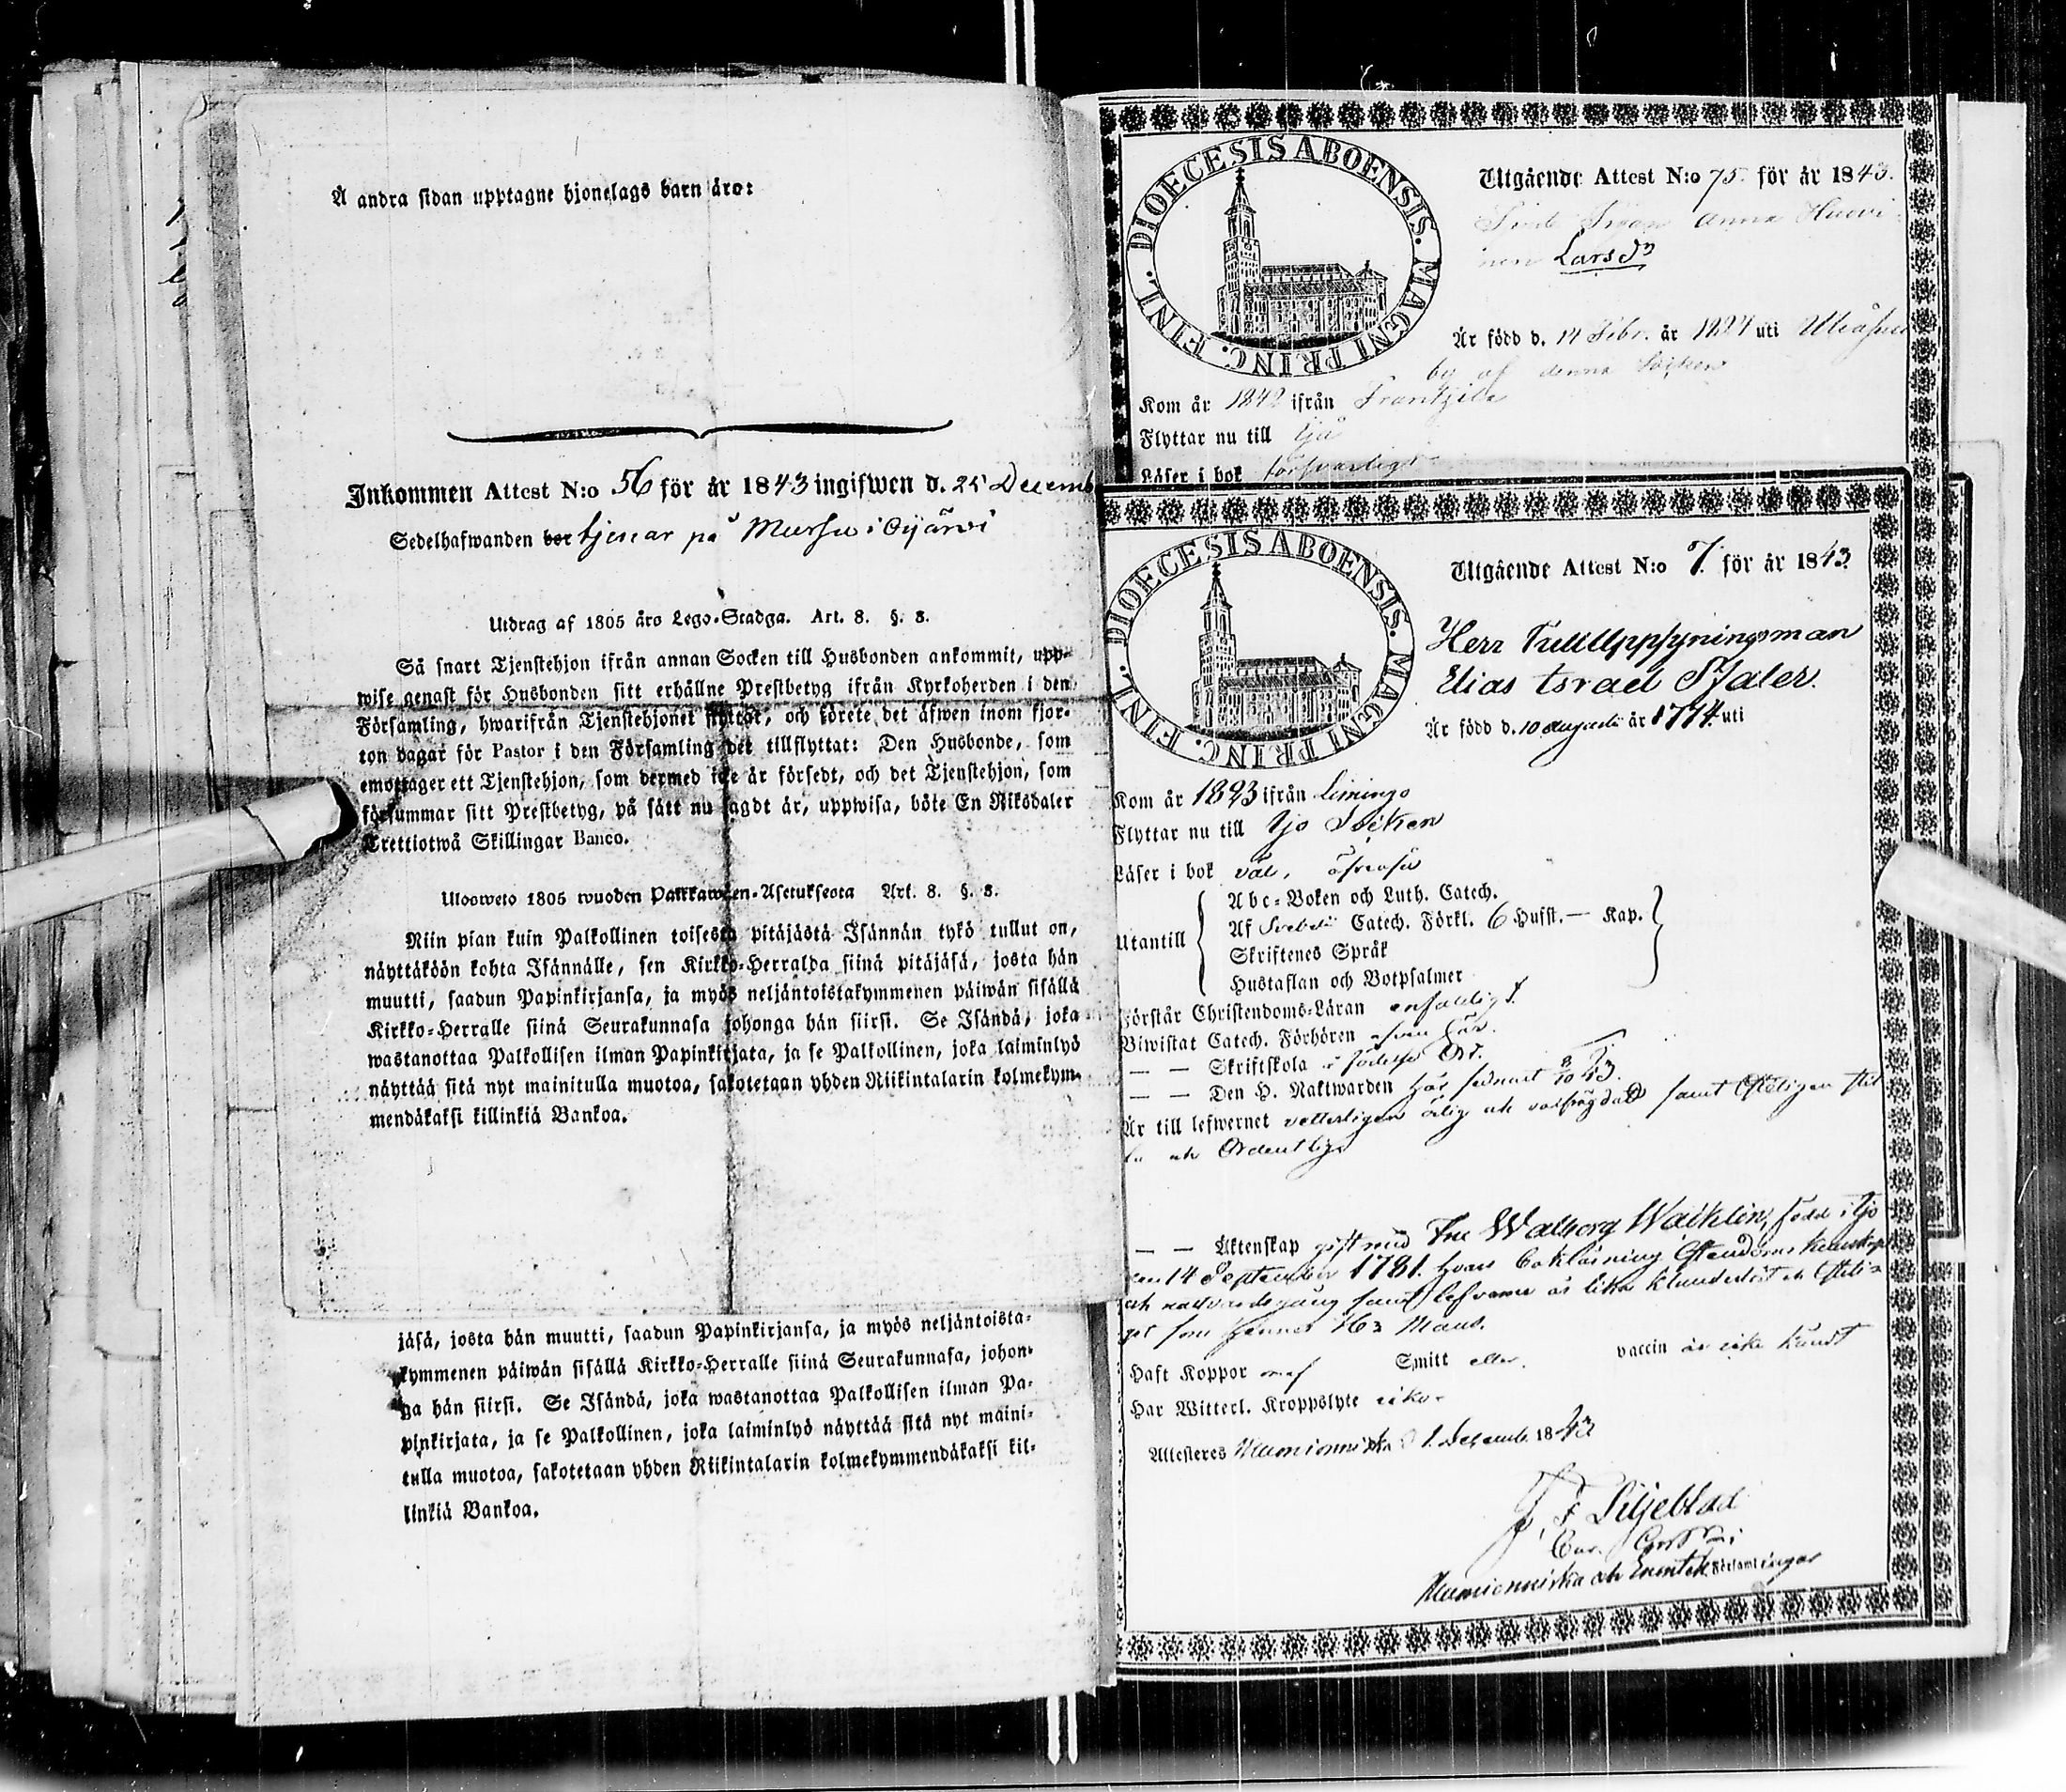 Å andra sidan upptagne hjonelags barn äro:
Inkommen Attest N:o 56 för år 1843 ingifwen d. 25 Decemb
Sedelhafwanden bor tjenar på Mursu i Oijärvi
Utdrag af 1805 års Lego-Stadga. Art. 8. §. 8.
Så snart Tjenstehjon ifrån annan Socken till Husbonden ankommit, upp-
wise genast för Husbonden sitt erhållne Prestbetyg ifrån Kyrkoherden i den
Församling, hwarifrån Tjenstehjonet flyttat, och förete det äfwen inom fjor-
ton dagar för Pastor i den Församling det tillflyttat: Den Husbonde, som
emottager ett Tjenstehjon, som dermed icke är försedt, och det Tjenstehjon, som
försummar sitt Prestbetyg, på sätt nu sagdt är, uppwisa, böte En Riksdaler
Trettiotwå Skillingar Banco.
Ulosweto 1805 wuoden Palkkawäen-Asetuksesta Art. 8. §. 8.
Niin pian kuin Palkollinen toisesta pitäjästä Isännän tykö tullut on,
näyttäköön kohta Isännälle, sen Kirkko-Herralda siinä pitäjäsä, josta hän
muutti, saadun Papinkirjansa, ja myös neljäntoistakymmenen päiwän sisällä
Kirkko-Herralle siinä Seurakunnasa johonga hän siirsi. Se Isändä, joka
wastanottaa Palkollisen ilman Papinkirjata, ja se Palkollinen, joka laiminlyö
näyttää sitä nyt mainitulla muotoa, sakotetaan yhden Riikintalarin kolmekym-
mendäkaksi killinkiä Bankoa.
jäsä, josta hän muutti, saadun Papinkirjansa, ja myös neljäntoista-
kymmenen päiwän sisällä Kirkko-Herralle siinä Seurakunnasa, johon-
ga hän siirsi. Se Isändä, joka wastanottaa Palkollisen ilman Pa-
pinkirjata, ja se Palkollinen, joka laiminlyö näyttää sitä nyt maini-
tulla muotoa, sakotetaan yhden Riikintalarin kolmekymmendäkaksi kil-
linkiä Bankoa.
DIOECESIS ABOENSIS. MAGNI PRINC. FINL.
Utgående Attest N:o 75. för år 1843.
Anna
Larsdr
Är född d. 14 Febr. år 1824 uti
by af denna Socken
Kom år 1842 ifrån Frantzila
Flyttar nu till Ijå
Läser i bok försvarligt
DIOECESIS ABOENSIS. MAGNI PRINC. FINL.
Utgående Attest N:o 7. för år 1843
Herr TullUppsyningsman
Elias Israel Staler.
Är född d. 10 Augusti år 1774 uti
Kom år 1823 ifrån Limingo
Flyttar nu till Ijo Socken
Läser i bok väl,
Utantill
Abc-Boken och Luth. Catech.
Af Svebelii Catech. Förkl. 6 Hufst. — Kap.
Skriftenes Språk
Hustaflan och Botpsalmer
Förstår Christendoms-Läran enfaldigt.
Biwistat Catech. Förhören
— — Skriftskola i födelse Ort.
— — Den H. Nattwarden här sednast 8/10 43.
Är till lefwernet vetterligen ärlig och välfrägdad samt
och Ordentlig
— — Äktenskap gift med Fru Walborg Waiklin, född i Ijo
den 14 September 1781. hvars bokläsning Christendoms kunskap
och nattvardsgång samt lefverne är lika
som hennes Hr Mans.
Haft Koppor Smitt eller vaccin är icke kändt
Har Witterl. Kroppslyte icke.
Attesteres Muonionniska d 1. December 1843
J. F. Liljeblad
Muonionniska och Enontekis Församlingar